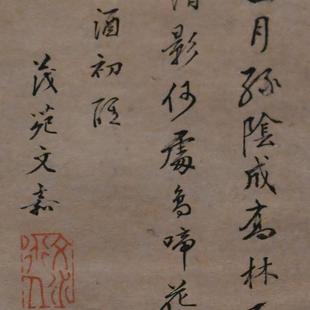 月緑陰成喬林
影何處鳥啼花
酒初醒
茂苑文嘉